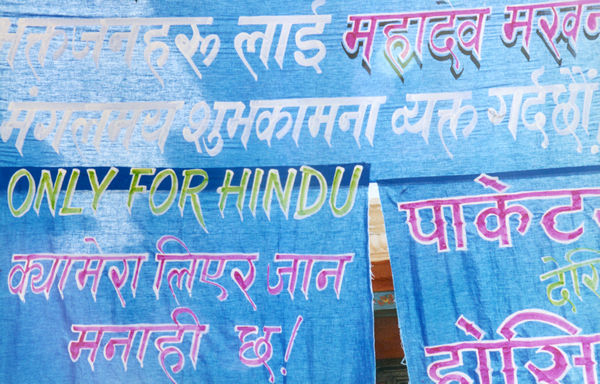 भक्तजनहरू लाई महादेव मखन
मंगलमय शुभकामना व्यक्त गर्दछौं
ONLY FOR HINDU
क्यामेरा लिएर जान
मनाही छ!
पाकेट
होसि